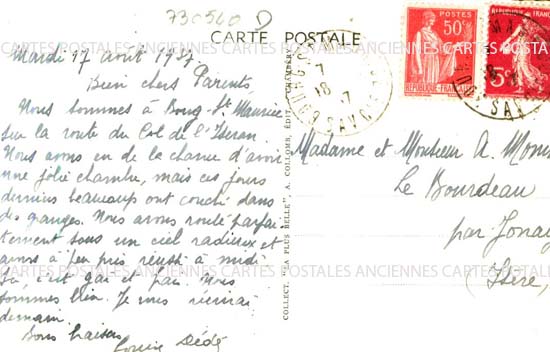 730560 D
CARTE POSTALE
Mardi 17 août 1937
Bien chers Parents,
Nous sommes à Bourg-St Maurice
sur la route du Col de l'Iseran.
Nous avons eu de la chance d'avoir
une jolie chambre, mais ces jours
derniers beaucoup ont couché dans
des granges. Nous avons roulé parfai-
tement sous un ciel radieux et
avons à peu près réussi à midi
Ça, c'est gai et pain. Nous
sommes bien. Je vous écrirai
demain.
Bons baisers
Louise Dédé
COLLECT. "LA PLUS BELLE", A. COLLOMB, ÉDIT. CHAMBÉRY
BOURG-S
SAVOIE
18
POSTES
50c
REPUBLIQUE FRANCAISE
5c
SAV
Madame et Monsieur A.
Le Bourdeau
par
(Isère)
CARTES POSTALES ANCIENNES CARTES POSTALES ANCIENNES CARTES POSTALES ANCIENNES